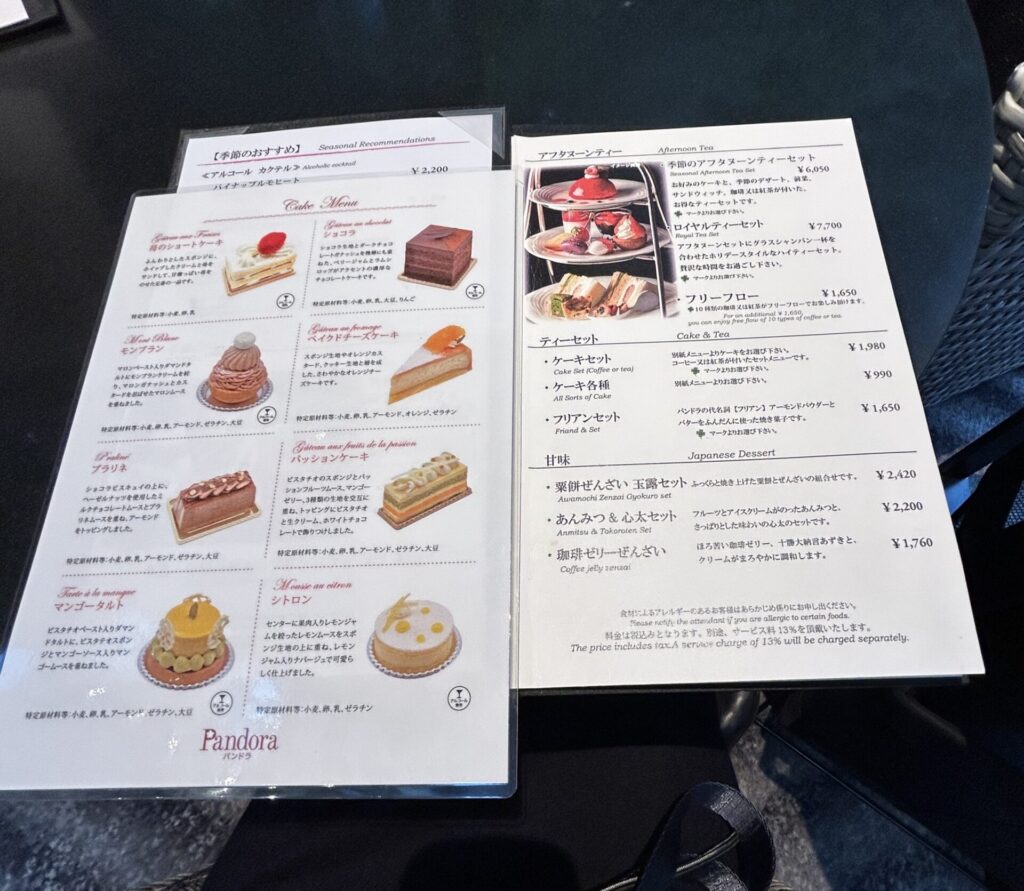 【季節のおすすめ】 Seasonal Recommendations
≪アルコール カクテル≫ Alcoholic cocktail ¥2,200
パイナップルモヒート
Cake Menu
Gâteau aux Fraises
苺のショートケーキ
ふんわりとしたスポンジに、
ホイップしたクリームと苺を
サンドして、甘酸っぱい苺を
のせた定番の一品です。
特定原材料等:小麦、卵、乳
Gâteau au chocolat
ショコラ
ショコラ生地とダークチョコ
レートガナッシュを幾層にも重
ねた、ベリージャムとラムシ
ロップがアクセントの濃厚な
チョコレートケーキです。
特定原材料等:小麦、卵、乳、大豆、りんご
Mont Blanc
モンブラン
マロンペースト入りダマンド
タルトにモンブランクリームを絞
り、マロンガナッシュとカス
タードを忍ばせたマロンムース
を重ねました。
特定原材料等:小麦、卵、乳、アーモンド、ゼラチン、大豆
Gâteau au fromage
ベイクドチーズケーキ
スポンジ生地やオレンジカス
タード、クッキー生地と層を成
した、さわやかなオレンジチー
ズケーキです。
特定原材料等:小麦、卵、乳、アーモンド、オレンジ、ゼラチン
Praliné
プラリネ
ショコラビスキュイの上に、
ヘーゼルナッツを使用したミ
ルクチョコレートムースとプラ
リネムースを重ね、アーモンド
をトッピングしました。
特定原材料等:小麦、卵、乳、アーモンド、ゼラチン、大豆
Gâteau aux fruits de la passion
パッションケーキ
ピスタチオのスポンジとパッ
ションフルーツムース、マンゴー
ゼリー、3種類の生地を交互に
重ね、トッピングにピスタチオ
と生クリーム、ホワイトチョコ
レートで飾りつけしました。
特定原材料等:小麦、卵、乳、アーモンド、ゼラチン、大豆
Tarte à la mangue
マンゴータルト
ピスタチオペースト入りダマン
ドタルトに、ピスタチオスポン
ジとマンゴーソース入りマン
ゴームースを重ねました。
特定原材料等:小麦、卵、乳、アーモンド、ゼラチン、大豆
アルコール
使用
Mousse au citron
シトロン
センターに果肉入りレモンジャ
ムを絞ったレモンムースをスポ
ンジ生地の上に重ね、レモン
ジャム入りナパージュで可愛ら
しく仕上げました。
特定原材料等:小麦、卵、乳、ゼラチン
アルコール
使用
Pandora
パンドラ
アフタヌーンティー Afternoon Tea
・季節のアフタヌーンティーセット
Seasonal Afternoon Tea Set ¥6,050
お好みのケーキと、季節のデザート、前菜、
サンドウィッチ、珈琲又は紅茶が付いた、
お得なティーセットです。
マークよりお選び下さい。
・ロイヤルティーセット ¥7,700
Royal Tea Set
アフタヌーンセットにグラスシャンパン一杯を
合わせたホリデースタイルなハイティーセット。
贅沢な時間をお過ごし下さい。
マークよりお選び下さい。
・フリーフロー ¥1,650
10種類の珈琲又は紅茶がフリーフローでお楽しみ頂けます。
For an additional ¥1,650,
you can enjoy free flow of 10 types of coffee or tea.
ティーセット Cake & Tea
・ケーキセット 別紙メニューよりケーキをお選び下さい。 ¥1,980
Cake Set (Coffee or tea) コーヒー又は紅茶が付いたセットメニューです。
マークよりお選び下さい。
・ケーキ各種 別紙メニューよりお選び下さい。 ¥990
All Sorts of Cake
・フリアンセット パンドラの代名詞【フリアン】アーモンドパウダーと ¥1,650
Friand & Set バターをふんだんに使った焼き菓子です。
マークよりお選び下さい。
甘味 Japanese Dessert
・粟餅ぜんざい 玉露セット ふっくらと焼き上げた粟餅とぜんざいの組合せです。 ¥2,420
Awamochi Zenzai Gyokuro set
・あんみつ & 心太セット フルーツとアイスクリームがのったあんみつと、 ¥2,200
Anmitsu & Tokoroten Set さっぱりとした味わいの心太のセットです。
・珈琲ゼリーぜんざい ほろ苦い珈琲ゼリー、十勝大納言あずきと、 ¥1,760
Coffee jelly zenzai クリームがまろやかに調和します。
食材によるアレルギーのあるお客様はあらかじめ係りにお申し出ください。
Please notify the attendant if you are allergic to certain foods.
料金は税込みとなります。別途、サービス料13%を頂戴いたします。
The price includes tax.A service charge of 13% will be charged separately.